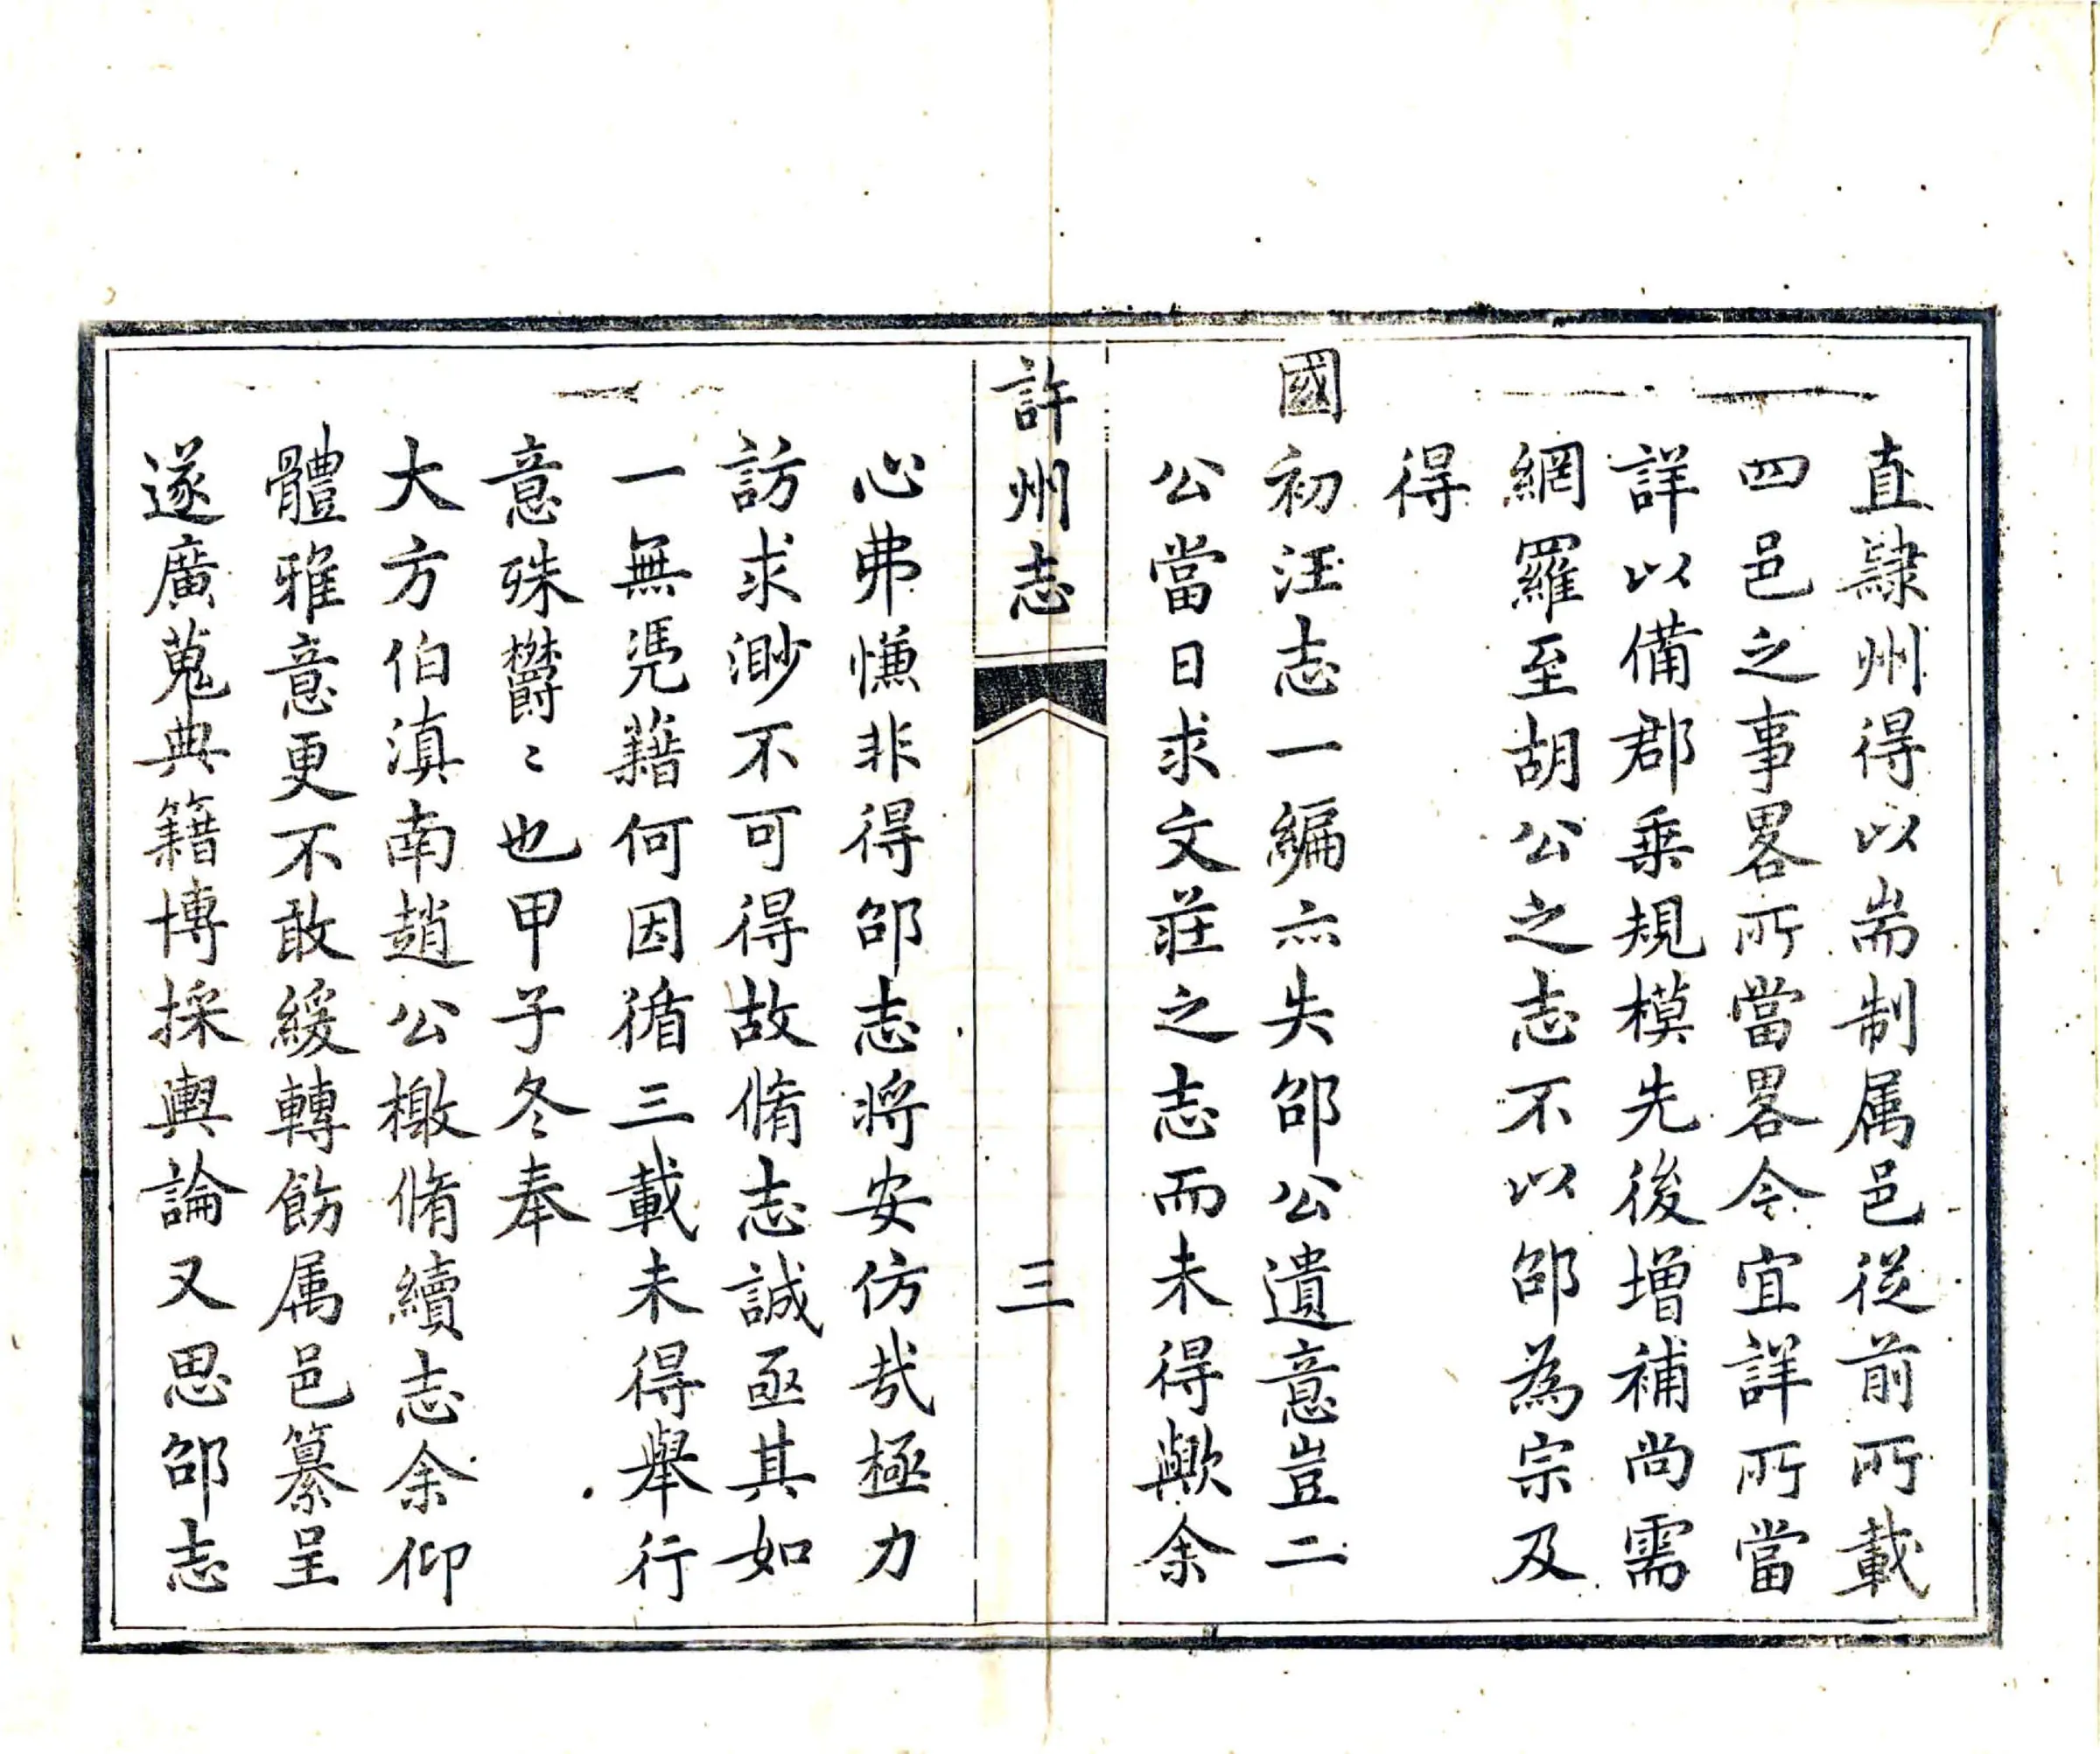 直隸州得以耑制属邑從前所載
四邑之事畧所當畧今宜詳所當
詳以備郡乗規模先後增補尚需
網羅至胡公之志不以邵為宗及
得
國初汪志一編亦失邵公遺意豈二
公當日求文莊之志而未得歟余
許州志 三
心弗慊非得邵志將安仿哉極力
訪求渺不可得故脩志誠亟其如
一無凴藉何因循三載未得舉行
意殊欝〻也甲子冬奉
大方伯滇南趙公檄脩續志余仰
體雅意更不敢緩轉飭属邑纂呈
遂廣蒐典籍博採輿論又思邵志